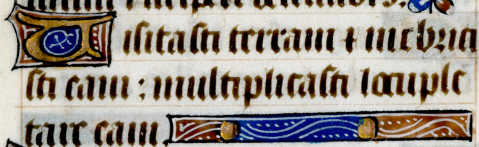 Visitasti terram ⁊ inebria
sti eam : multiplicasti locuple
tare eam.